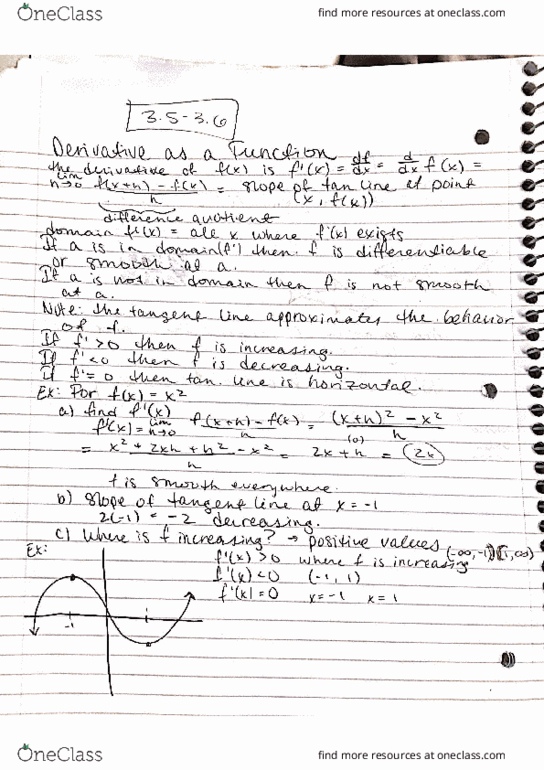 OneClass
find more resources at oneclass.com
3.5-3.6
Derivative as a Function
the derivative of f(x) is f'(x) = df/dx = d/dx f(x) =
lim h→0 f(x+h) - f(x) / h = slope of tan line at point
(x, f(x))
difference quotient
domain f'(x) = all x where f'(x) exists
If a is in domain(f') then f is differentiable
or smooth at a.
If a is not in domain then f is not smooth
at a.
Note: the tangent line approximates the behavior
of f.
If f' > 0 then f is increasing.
If f' < 0 then f is decreasing.
If f' = 0 then tan. line is horizontal.
Ex: For f(x) = x²
a) find f'(x)
f'(x) = lim h→0 f(x+h) - f(x) / h = (x+h)² - x² / h
(0)
= x² + 2xh + h² - x² / h = 2x + h = 2x
f is smooth everywhere.
b) slope of tangent line at x = -1
2(-1) = -2 decreasing.
c) Where is f increasing? → positive values
Ex:
(-∞, -1) (1, ∞)
f'(x) > 0 where f is increasing
f'(x) < 0 (-1, 1)
f'(x) = 0 x = -1 x = 1
-1
OneClass
find more resources at oneclass.com